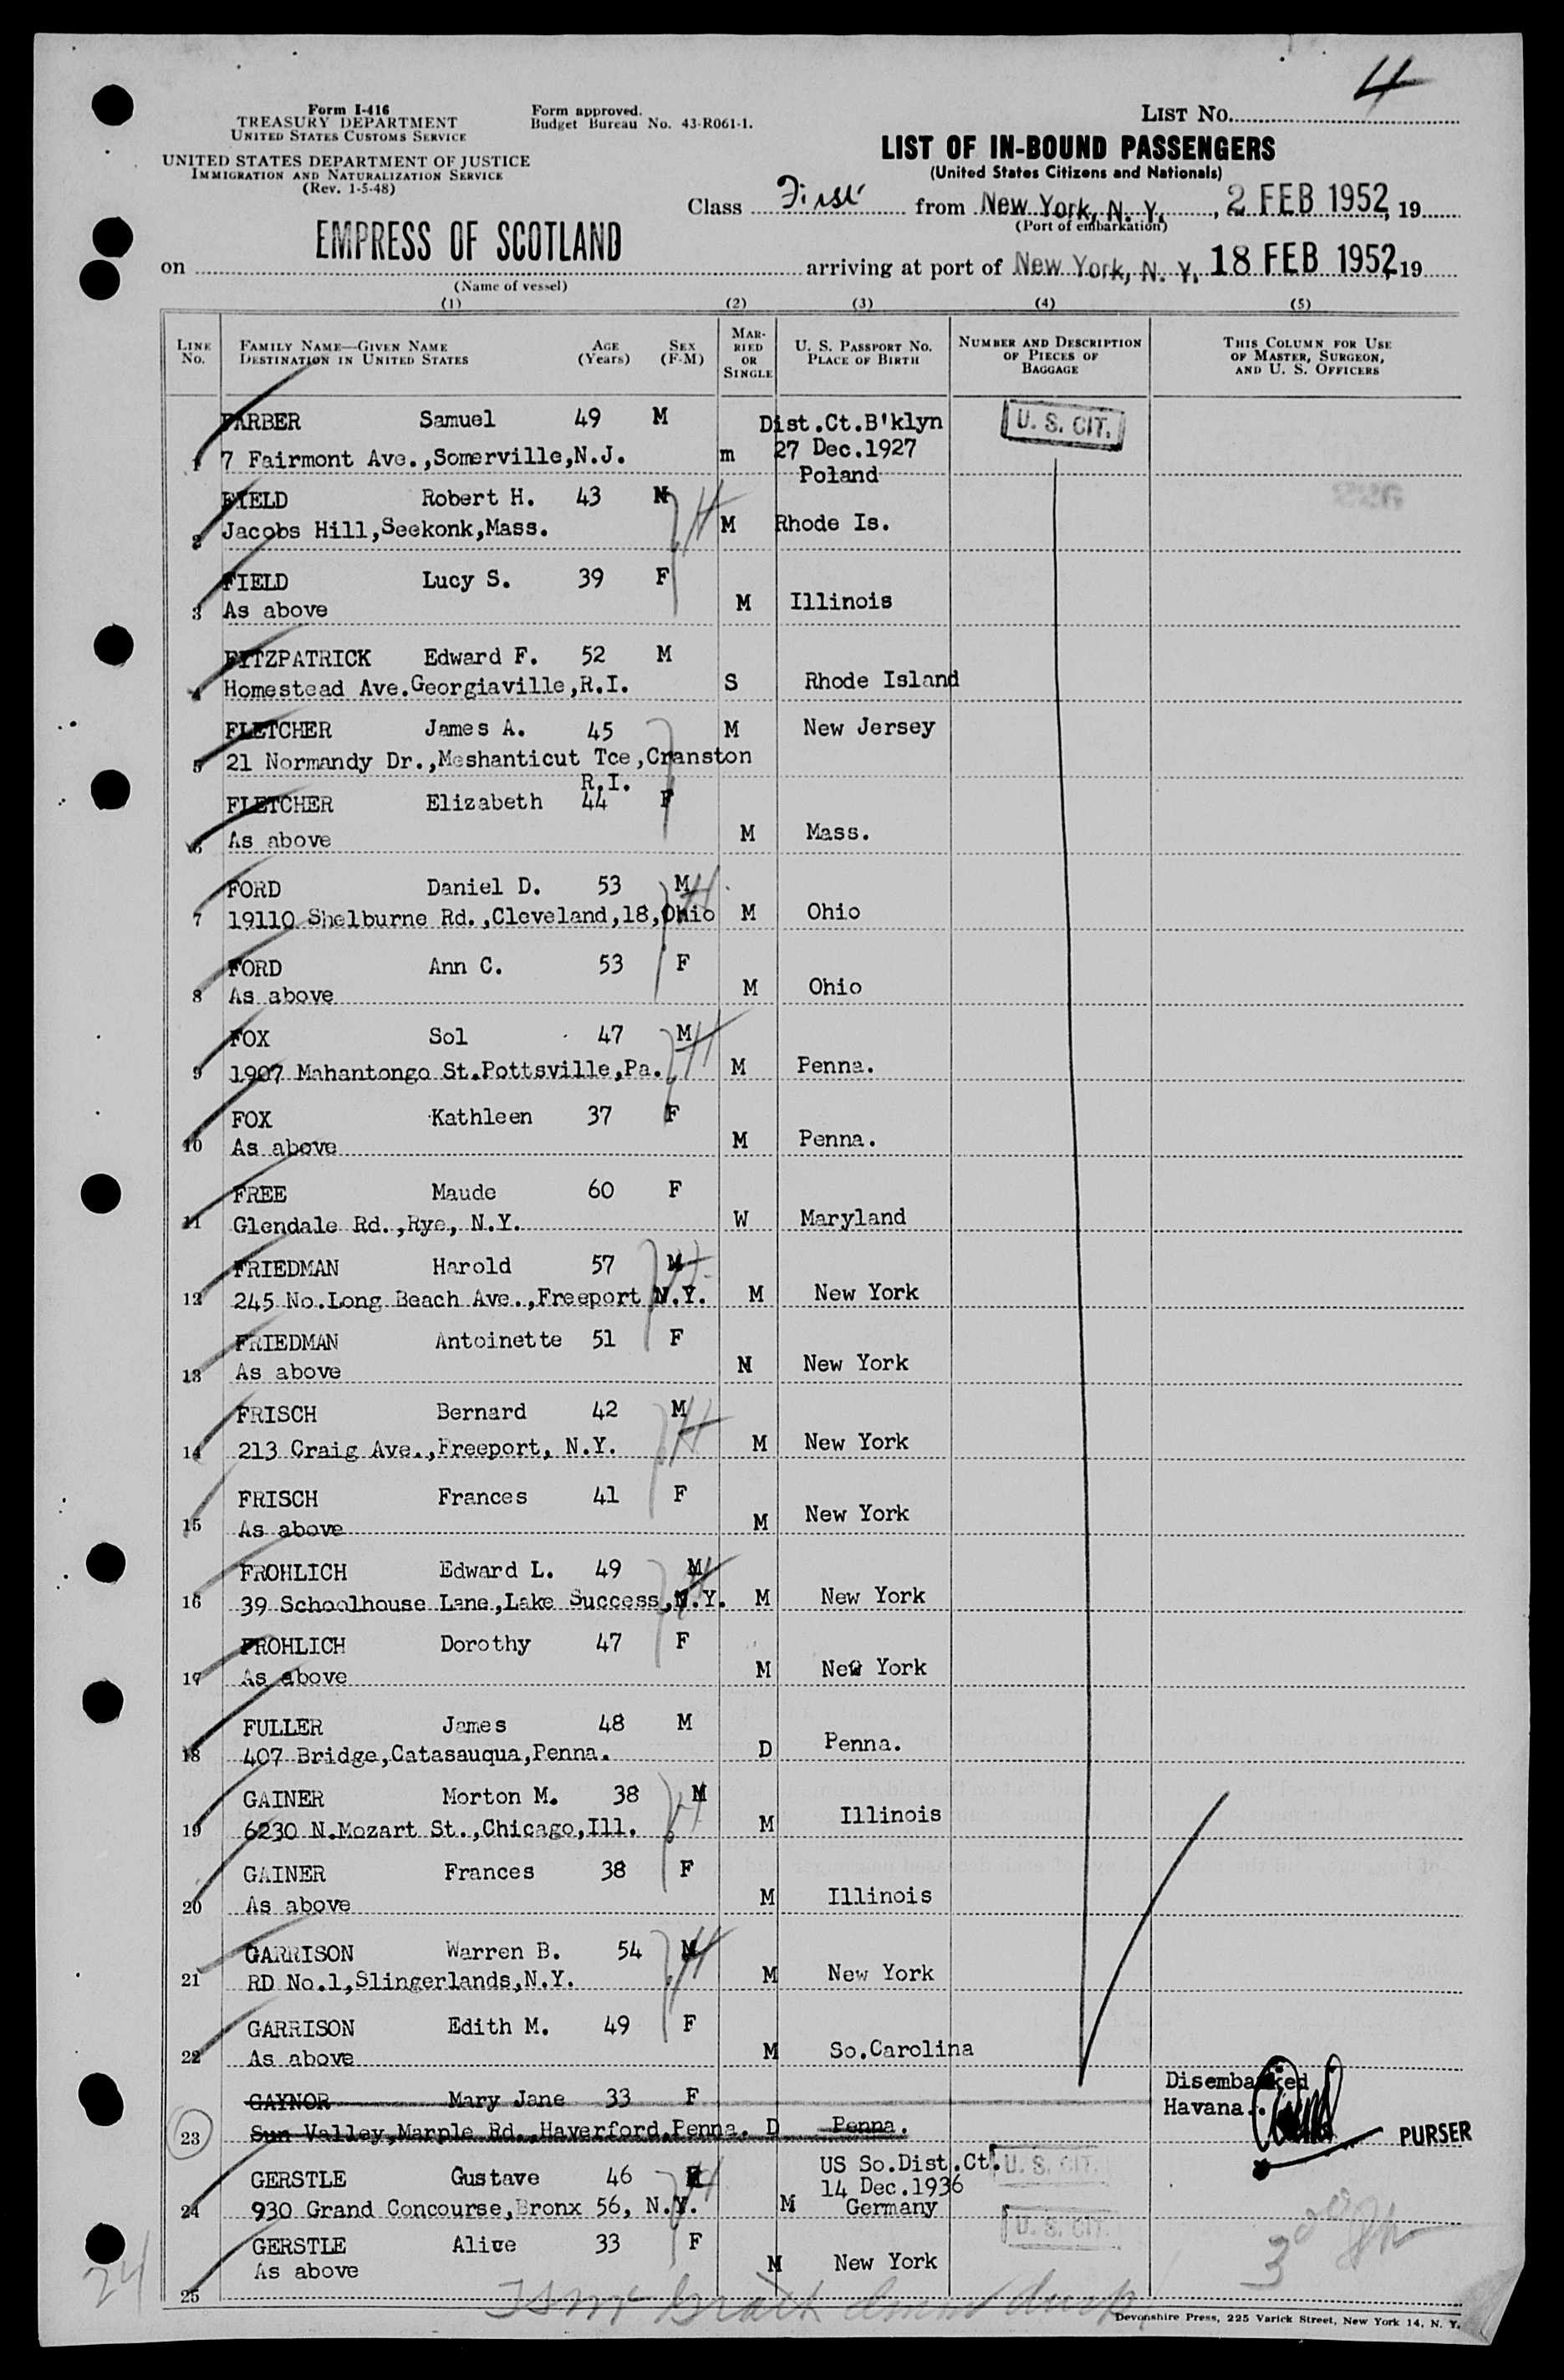 4
Form I-416
TREASURY DEPARTMENT
UNITED STATES CUSTOMS SERVICE
UNITED STATES DEPARTMENT OF JUSTICE
IMMIGRATION AND NATURALIZATION SERVICE
(Rev. 1-5-48)
Form approved.
Budget Bureau No. 43-R061-1.
LIST No.
LIST OF IN-BOUND PASSENGERS
(United States Citizens and Nationals)
Class First from New York, N. Y., 2 FEB 1952, 19
(Port of embarkation)
on EMPRESS OF SCOTLAND arriving at port of New York, N. Y. 18 FEB 1952, 19
(Name of vessel)
(1) (2) (3) (4) (5)
LINE No. FAMILY NAME—GIVEN NAME DESTINATION IN UNITED STATES AGE (Years) SEX (F-M) MARRIED OR SINGLE U. S. PASSPORT NO. PLACE OF BIRTH NUMBER AND DESCRIPTION OF PIECES OF BAGGAGE THIS COLUMN FOR USE OF MASTER, SURGEON, AND U. S. OFFICERS
FARBER Samuel 49 M Dist.Ct.B'klyn U. S. CIT.
1 7 Fairmont Ave.,Somerville,N.J. m 27 Dec.1927
Poland
FIELD Robert H. 43 M
2 Jacobs Hill,Seekonk,Mass. M Rhode Is.
FIELD Lucy S. 39 F
3 As above M Illinois
FITZPATRICK Edward F. 52 M
4 Homestead Ave.Georgiaville,R.I. S Rhode Island
FLETCHER James A. 45 M New Jersey
5 21 Normandy Dr.,Meshanticut Tce,Cranston
R.I.
FLETCHER Elizabeth 44 F
6 As above M Mass.
FORD Daniel D. 53 M
7 19110 Shelburne Rd.,Cleveland,18,Ohio M Ohio
FORD Ann C. 53 F
8 As above M Ohio
FOX Sol 47 M
9 1907 Mahantongo St.Pottsville,Pa. M Penna.
FOX Kathleen 37 F
10 As above M Penna.
FREE Maude 60 F
11 Glendale Rd.,Rye, N.Y. W Maryland
FRIEDMAN Harold 57 M
12 245 No.Long Beach Ave.,Freeport N.Y. M New York
FRIEDMAN Antoinette 51 F
13 As above M New York
FRISCH Bernard 42 M
14 213 Craig Ave.,Freeport, N.Y. M New York
FRISCH Frances 41 F
15 As above M New York
FROHLICH Edward L. 49 M
16 39 Schoolhouse Lane,Lake Success,N.Y. M New York
FROHLICH Dorothy 47 F
17 As above M New York
FULLER James 48 M
18 407 Bridge,Catasauqua,Penna. D Penna.
GAINER Morton M. 38 M
19 6230 N.Mozart St.,Chicago,Ill. M Illinois
GAINER Frances 38 F
20 As above M Illinois
GARRISON Warren B. 54 M
21 RD No.1,Slingerlands,N.Y. M New York
GARRISON Edith M. 49 F
22 As above M So.Carolina
GAYNOR Mary Jane 33 F Disembarked
Havana.
23 Sun Valley,Marple Rd.,Haverford,Penna. D Penna. PURSER
GERSTLE Gustave 46 M US So.Dist.Ct. U. S. CIT.
14 Dec.1936
24 930 Grand Concourse,Bronx 56, N.Y. M Germany
GERSTLE Alice 33 F U. S. CIT.
25 As above M New York
24
Devonshire Press, 225 Varick Street, New York 14, N. Y.